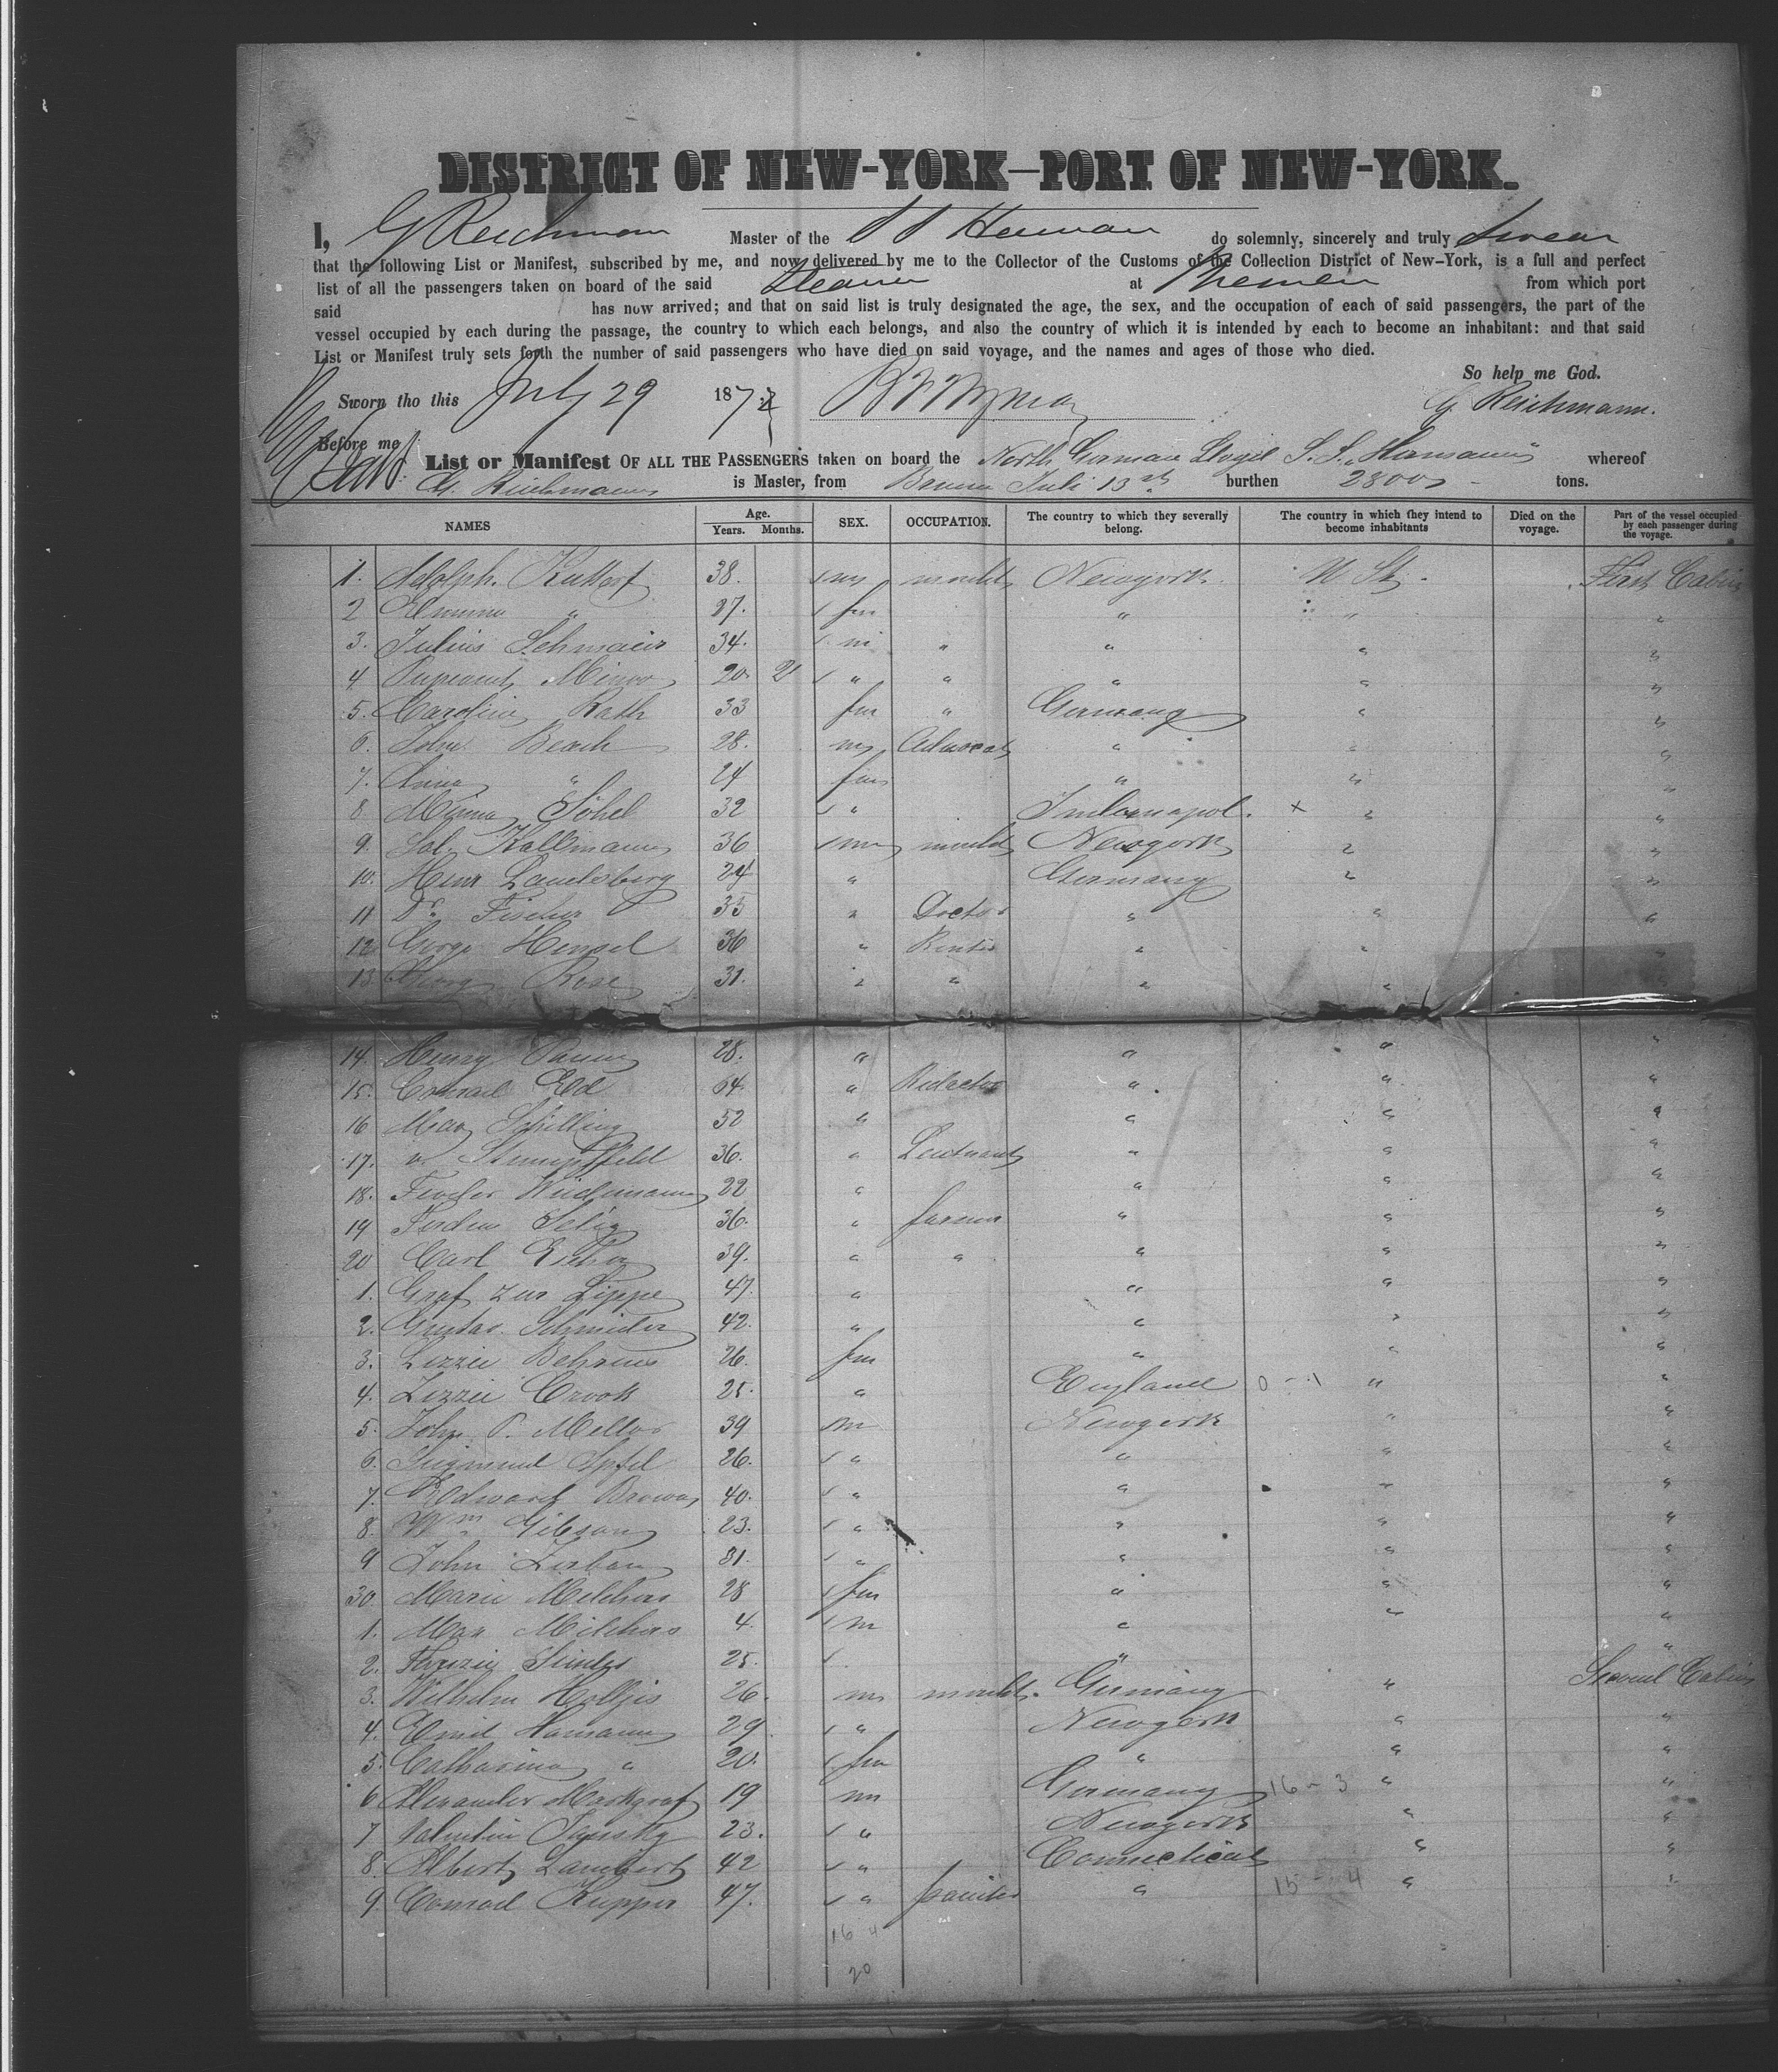 DISTRICT OF NEW-YORK—PORT OF NEW-YORK.
I, G Reichmann Master of the S S Herman do solemnly, sincerely and truly swear
that the following List or Manifest, subscribed by me, and now delivered by me to the Collector of the Customs of the Collection District of New-York, is a full and perfect
list of all the passengers taken on board of the said Steamer at Bremen from which port
said has now arrived; and that on said list is truly designated the age, the sex, and the occupation of each of said passengers, the part of the
vessel occupied by each during the passage, the country to which each belongs, and also the country of which it is intended by each to become an inhabitant: and that said
List or Manifest truly sets forth the number of said passengers who have died on said voyage, and the names and ages of those who died.
So help me God.
Sworn tho this July 29 187 G. Reichmann.
Before me
List or Manifest OF ALL THE PASSENGERS taken on board the North German Lloyd S.S. "Hermann" whereof
G. Reichmann is Master, from Bremen Juli 13th burthen 2800 tons.
NAMES Age. Years. Months. SEX. OCCUPATION. The country to which they severally belong. The country in which they intend to become inhabitants Died on the voyage. Part of the vessel occupied by each passenger during the voyage.
1. Adolph. 38. m Newyork U St. First Cabin
2 Emma " 27. fm " "
3. Julius 34. m " " " "
4 20. " " " " "
5. Caroline Rath 33 fm " Germany " "
6. John Beach 28. m Advocat " " "
7. Anna " 24 fm " " "
8 Minna 32 " Indianapol. x " "
9. Sal. Kallmann 36 m Newyork " "
10. Henr Landsberg 24 " Germany " "
11 Dr. Fischer 35 " Doctor " " "
12 George Hensel 36 " Rentier " " "
13 Georg Rose 31. " " " " "
14. Henry 28. " " " "
15. Conrad 64. " Redacteur " " "
16 Max Schilling 52 " " " "
17. v. 36. " Lieutnant " " "
18. Wiedemann 22 " " " "
19 36. " farmer " " "
20 Carl 39. " " " " "
1. Graf zur Lippe 47. " " " "
2. Gustav Schneider 42. " " " "
3. Lizzie Behrens 26. fm " " "
4. Lizzie Crook 25. " England 0 - 1 " "
5. John P. Mellor 39 m Newyork " "
6. Siegmund 26. " " " "
7. Edward Brown 40. " " " "
8. Wm Gibson 23. " " " "
9 John 31. " " " "
30. Marie Melchers 28 fm " " "
1. Max Melchers 4. m " " "
2. 25. " "
3. Wilhelm 26. m Germany " Second Cabin
4. Emil Hamann 29 " Newyork " "
5. Catharina " 20. fm " " "
6 Alexander Markgraf 19 m Germany 16 - 3 " "
7 Valentin 23. " Newyork " "
8. Albert Lambert 42 " Connecticut " "
9. Conrad Kupper 47. " painter " 15 - 4 " "
16 4
20